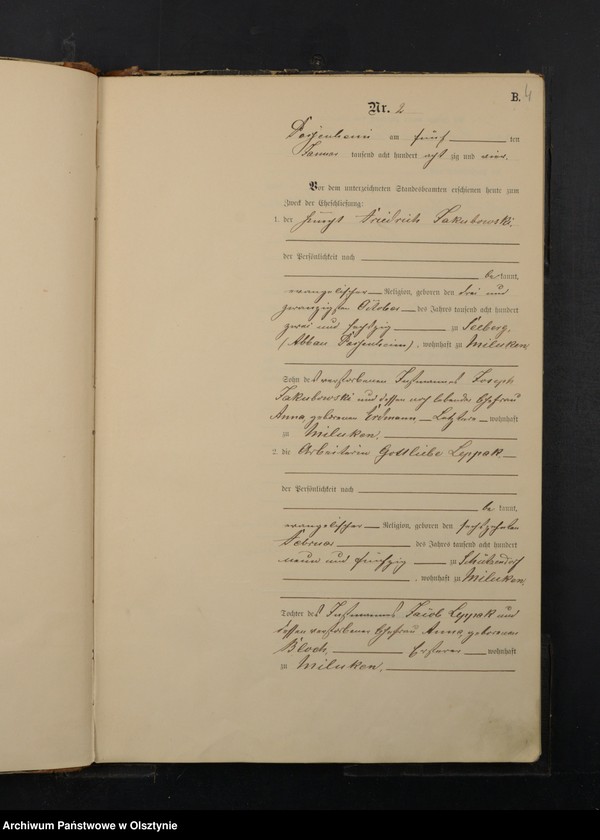 B. 4
Nr. 2
am fünf ten
Januar tausend acht hundert acht zig und vier.
Vor dem unterzeichneten Standesbeamten erschienen heute zum
Zweck der Eheschließung:
1. der Knecht Friedrich Jakubowski,
der Persönlichkeit nach
be kannt,
evangelischer Religion, geboren den drei und
zwanzigsten October des Jahres tausend acht hundert
zwei und sechszig zu Seeberg,
(Abbau Dossenheim), wohnhaft zu Miluken,
Sohn des verstorbenen Instmannes Joseph
Jakubowski und dessen noch lebende Ehefrau
Anna, geborenen Erdmann Letztere wohnhaft
zu Miluken,
2. die Arbeiterin Gottliebe Leppak
der Persönlichkeit nach
be kannt,
evangelischer Religion, geboren den sechszehnten
Februar des Jahres tausend acht hundert
neun und fünfzig zu Schützendorf
, wohnhaft zu Miluken,
Tochter des Instmannes Jacob Leppak und
dessen verstorbener Ehefrau Anna, geborenen
Bloch, Ersterer wohnhaft
zu Miluken,
Archiwum Państwowe w Olsztynie